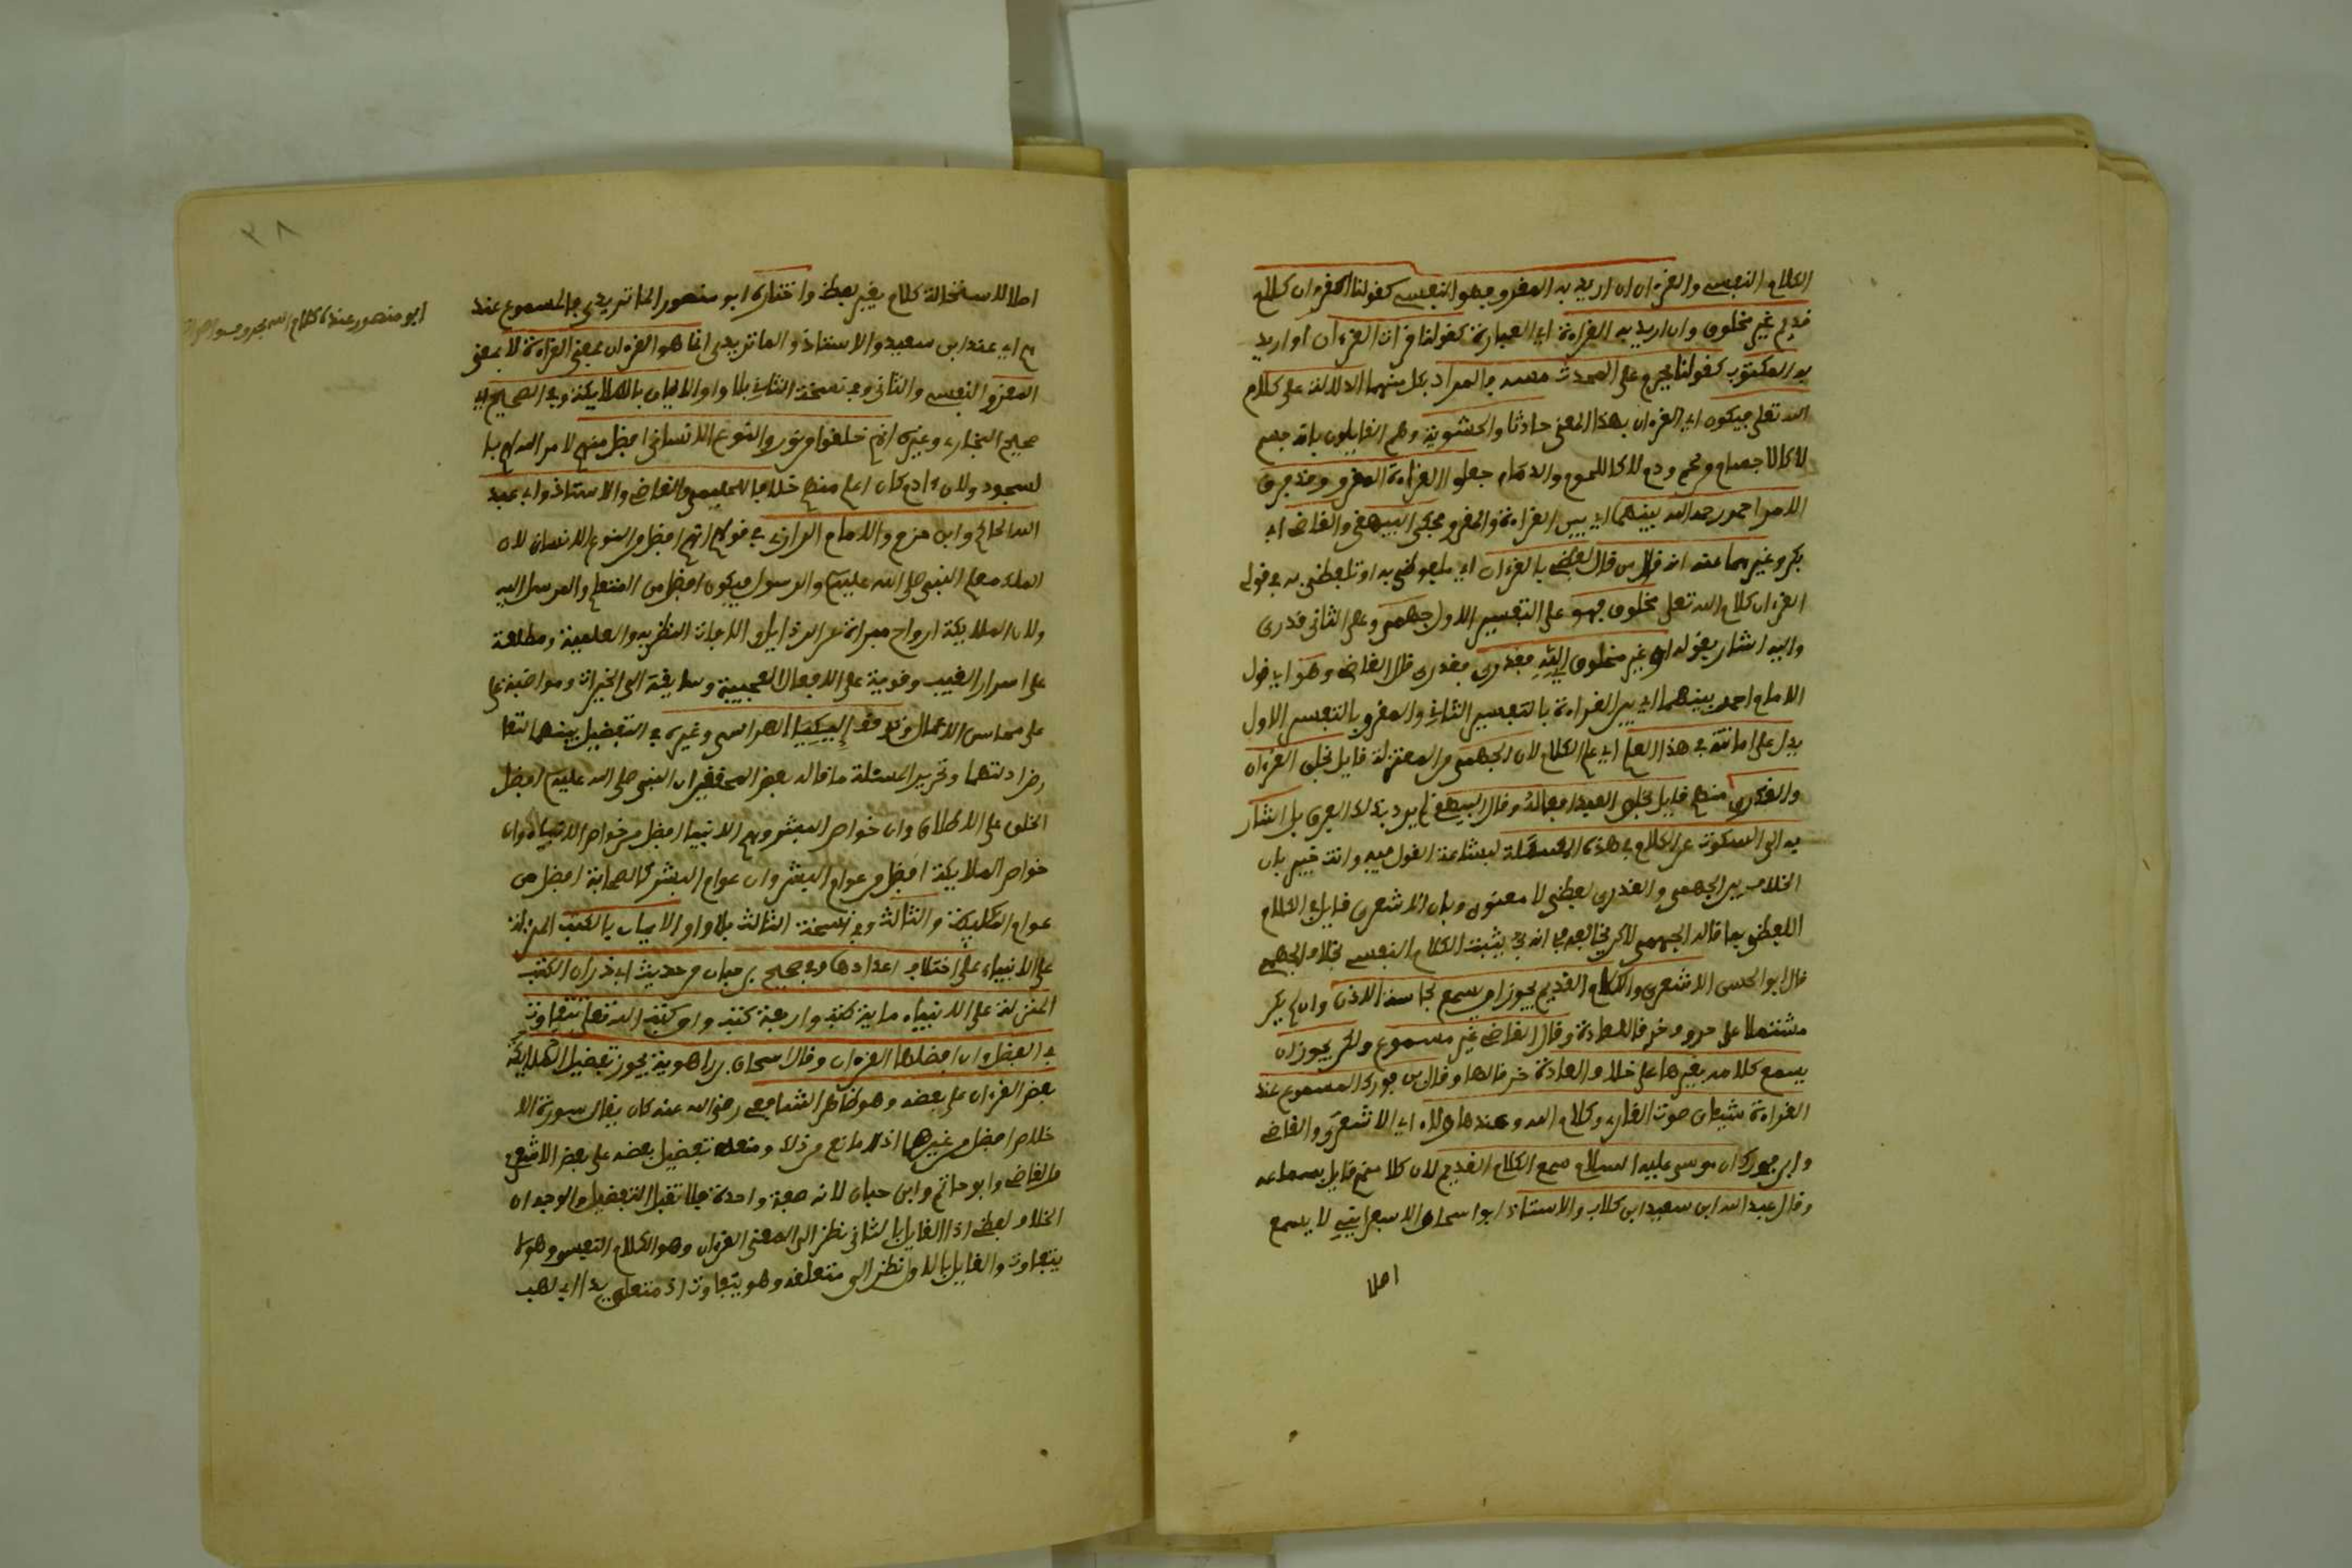 الكلام النفسي والقرءان ان اريد به المقرو فهو النفسي كقولنا القرءان كلام
قديم غير مخلوق وان اريد به القراءة اي العبارة كقولنا قرات القرءان او اريد
به المكتوب كقولنا يحرم على المحدث مسه فالمراد بكل منهما الدلالة على كلام
الله تعلى فيكون اي القرءان بهذا المعنى حادثا والحشوية وهم القايلون بانه جسم
لا كالاجسام ولحم ودم لا كاللحوم والدماء جعلوا القراءة المقرو وقد فرق
الامام احمد رحمه الله بينهما اي بين القراءة والمقرو فحكى البيهقي والقاضي ابي
بكر وغيرهما عنه انه قال من قال لفظي بالقرءان اي ملفوظي به او تلفظي به في قوله
القرءان كلام الله تعلى مخلوق فهو على التفسير الاول جهمي وعلى الثاني قدري
واليه اشار بقوله او غير مخلوق فقدري قال القاضي وهو اي قول
الامام احمد بينهما اي بين القراءة بالتفسير الثاني والمقرو بالتفسير الاول
يدل على امامته في هذا العلم اي علم الكلام لان الجهمي من المعتزلة قايل بخلق القرءان
والقدري منهم قايل بخلق العبد افعاله وقال البيهقي لم يرد بذلك الفرق بل اشار
به الى السكوت عن الكلام في هذه المسئلة لبشاعة القول فيه وانت خبير بان
الخلاف بين الجهمي والقدري لفظي لا معنوي وبان الاشعري قايل في الكلام
اللفظي بما قاله الجهمي لاكن يخالفه في انه يثبت الكلام النفسي بخلاف الجهمي
قال ابو الحسن الاشعري والكلام القديم يجوز ان يسمع بحاسة الاذن وان لم يكن
مشتملا على حروف خرقا للعادة وقال القاضي غير مسموع ولكن يجوز ان
يسمع كلامه بغيرها على خلاف العادة خرقا لها وقال بن فورك المسموع عند
القراءة شيئان صوت القارى وكلام الله وعند هاولاء اي الاشعري والقاضي
وابن فورك ان موسى عليه السلام سمع الكلام القديم لان كلا منهم قايل بسماعه
وقال عبد الله ابن سعيد ابن كلاب والاستاذ ابو اسحاق الاسفرايني لا يسمع
اصلا
٣٨
اصلا لاستحالة كلام بغير لفظ واختاره ابو منصور الماتريدي فالمسموع عند
هم اي عند ابن سعيد والاستاذ والماتريدي انما هو القرءان بمعنى القراءة لا بمعنى
المقرو النفسي والثاني وفي نسخة الثاني بلا واو الايمان بالملايكة وفي الصحيح اي
صحيح البخاري وغيره انهم خلقوا من نور والنوع الانساني افضل منهم لامر الله لهم با
لسجود ولان ءادم كان اعلم منهم خلافا للحليمي والقاضي والاستاذ وابي عبد
الله الحاكم وابن حزم والامام الرازي في قولهم انهم افضل من النوع الانساني لان
الملك معلم النبي صلى الله عليه وسلم والرسول فيكون افضل من المتعلم والمرسل اليه
ولان الملايكة ارواح مبراة عن الرذايل والافات النظرية والعلمية ومطلعة
على اسرار الغيب وقوية على الافعال العجيبة وسابقة الى الخيرات ومواضبة على
على محاسن الاعمال وتوقف إلكيا الهراسي وغيره في التفضيل بينهما لتعا
رض ادلتهما وتحرير المسئلة ما قاله بعض المحققين ان النبي صلى الله عليه وسلم افضل
الخلق على الاطلاق وان خواص البشر وهم الانبيا افضل من خواص وان
خواص الملايكة افضل من عوام البشر وان عوام البشر كالصحابة افضل من
عوام الملايكة والثالث وفي نسخة الثالث بلا واو الايمان بالكتب المنزلة
على الانبياء على اختلاف اعدادها وفي صحيح بن حبان من حديث ابي ذر ان الكتب
المنزلة على الانبياء ماية كتب واربعة كتب وان كتب الله تعلى تتفاوت
في الفضل وان افضلها القرءان وقال اسحاق بن راهوية يجوز تفضيل
بعض القرءان على بعضه وهو ظاهر الشافعي رضي الله عنه كان يقال سورة الا
خلاص افضل من غيرها اذ لا مانع من ذلك ومنعه تفضيل بعضه على بعض الاشعري
والقاضي وابو حاتم وابن حبان لانه صفة واحدة فلا تقبل التفضيل والوجه ان
الخلاف لفظي اذ القايل بالثاني نظر الى المعنى القرءان وهو الكلام النفسي وهو لا
يتفاوت والقايل بالاول نظر الى متعلقه وهو يتفاوت اذ متعلق يدا ابي لهب
ابو منصور عنده كلام الله